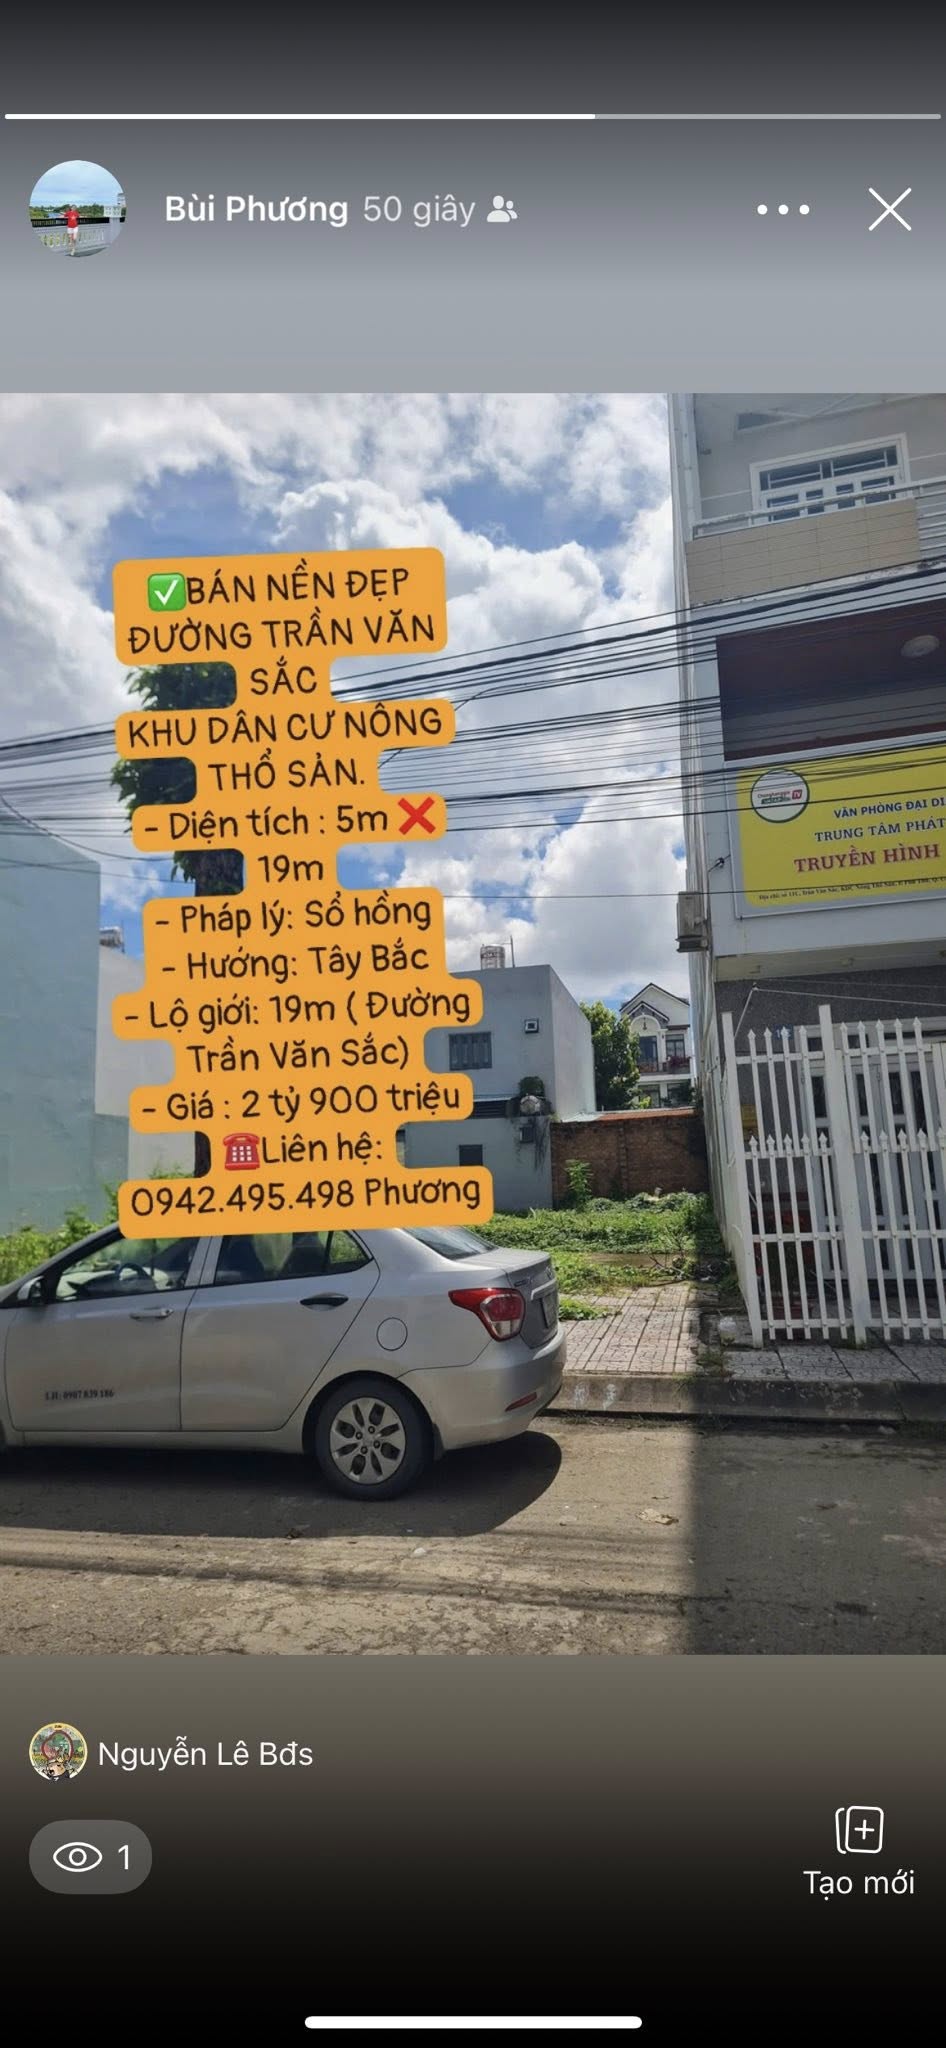 Bùi Phương 50 giây
✅BÁN NỀN ĐẸP
ĐƯỜNG TRẦN VĂN
SẮC
KHU DÂN CƯ NÔNG
THỔ SẢN.
- Diện tích : 5m ❌
19m
- Pháp lý: Sổ hồng
- Hướng: Tây Bắc
- Lộ giới: 19m ( Đường
Trần Văn Sắc)
- Giá : 2 tỷ 900 triệu
☎️Liên hệ:
0942.495.498 Phương
VĂN PHÒNG ĐẠI DI
TRUNG TÂM PHÁT
TRUYỀN HÌNH
LH: 0907 839 186
Nguyễn Lê Bđs
1
Tạo mới